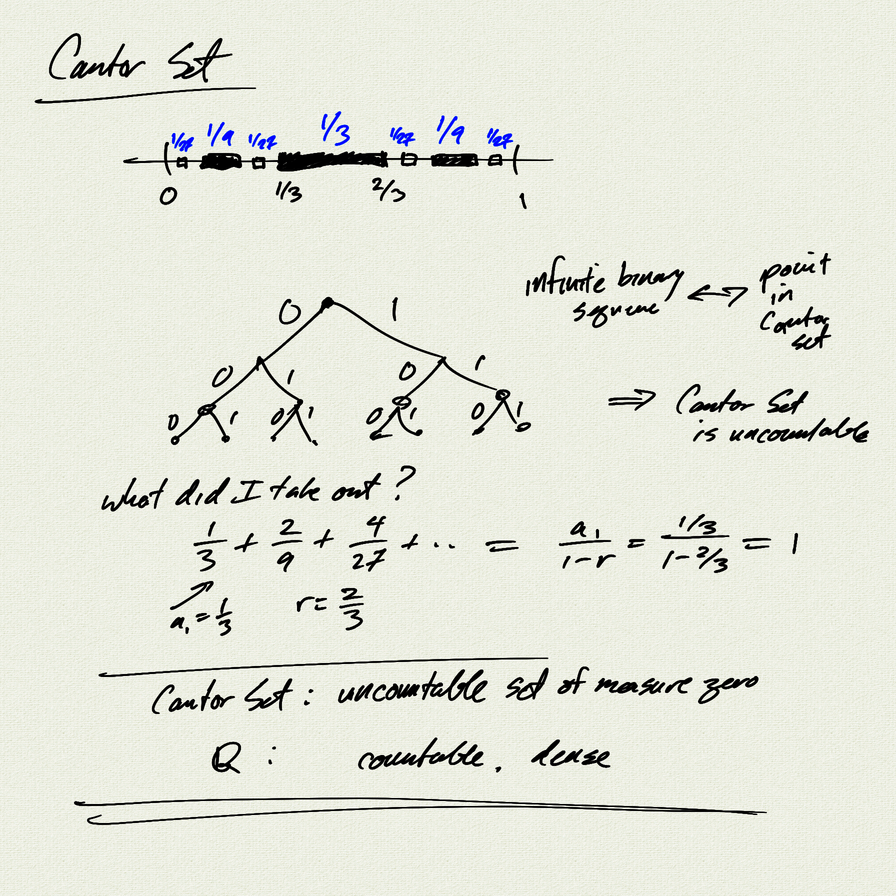 Cantor Set
1/27 1/9 1/27 1/3 1/27 1/9 1/27
0 1/3 2/3 1
infinite binary sequence ↔ point in Cantor set
0 1
0 1 0 1
0 1 0 1 0 1 0 1
⇒ Cantor Set
is uncountable
What did I take out?
1/3 + 2/9 + 4/27 + .. = a₁/(1-r) = (1/3)/(1-2/3) = 1
a₁ = 1/3 r = 2/3
Cantor Set : uncountable set of measure zero
Q : countable, dense